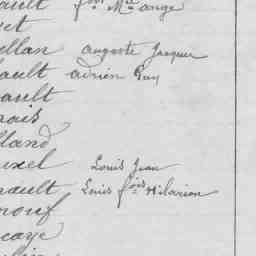 ault fois Mie ange
et
llan auguste Jacques
ault adrien
ault
ais
lland
uxel Louis Jean
nault Louis fois Hilarion
nouf
caye